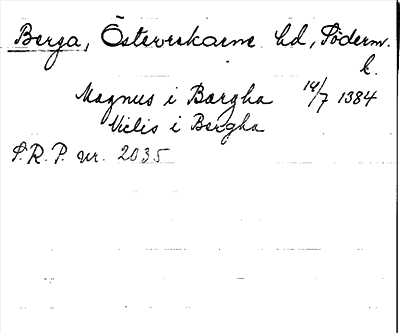 Berga, Österrekarne hd, Söderm.
l.
Magnus i Bærgha 14/7 1384
Niclis i Bergha
S.R.P. nr. 2035